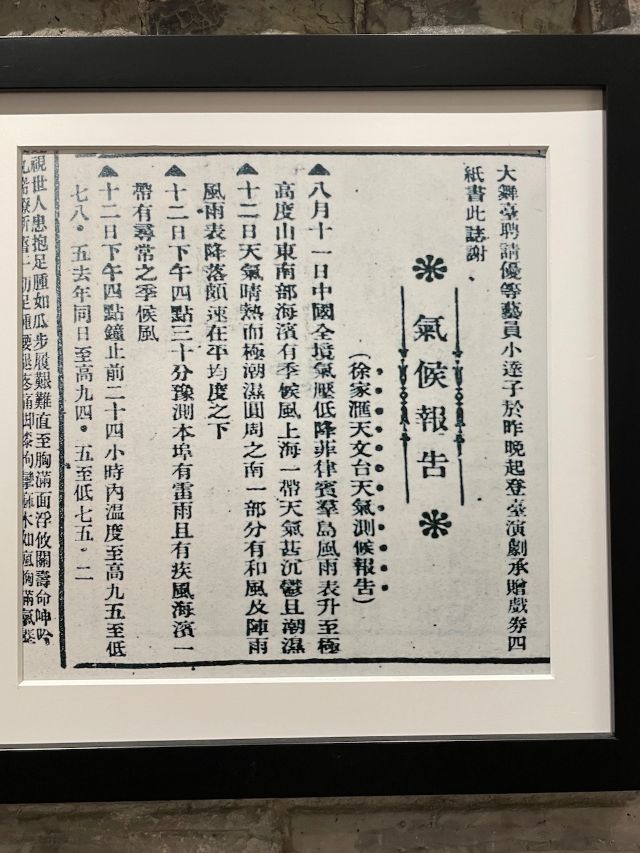 大舞臺聘請優等藝員小達子於昨晚起登臺演劇承贈戲券四
紙書此誌謝
氣候報告
(徐家滙天文台天氣測候報告)
▲八月十一日中國全境氣壓低降菲律賓羣島風雨表升至極
高度山東南部海濱有季候風上海一帶天氣甚沉鬱且潮濕
▲十二日天氣晴熱而極潮濕圓周之南一部分有和風及陣雨
風雨表降落頗速在平均度之下
▲十二日下午四點三十分豫測本埠有雷雨且有疾風海濱一
帶有尋常之季候風
▲十二日下午四點鐘止前二十四小時內溫度至高九五至低
七八。五去年同日至高九四。五至低七五。二
視世人患抱足腫如瓜步履艱難直至胸滿面浮攸關壽命呻吟